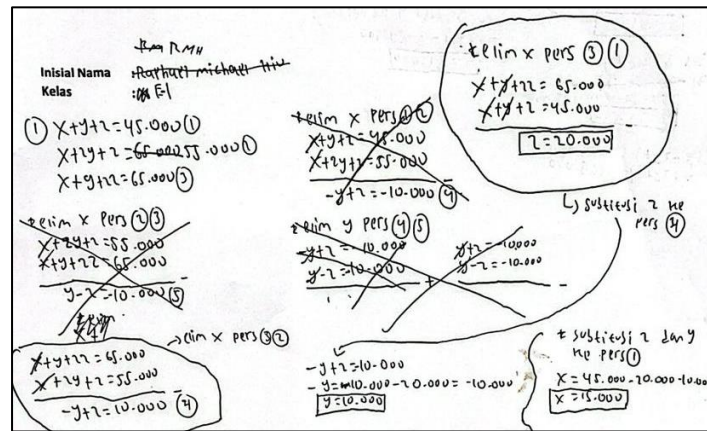 RMH
Inisial Nama :Raphael michael
Kelas : E-1
① x+y+z=45.000 ①
x+2y+z=65.000 55.000 ②
x+y+2z=65.000 ③
* elim x pers ② ③
x+2y+z=55.000
x+y+2z=65.000
y-z=-10.000 ⑤
→ elim x pers ③ ②
x+y+2z=65.000
x+2y+z=55.000
-y+z=10.000 ④
* elim x pers ① ②
x+y+z=45.000
x+2y+z=55.000
-y+z=-10.000 ④
* elim y pers ④ ⑤
-y+z=-10.000
y-z=-10.000
y+z=-10.000
y-z=-10.000
* elim x pers ③ ①
x+y+2z=65.000
x+y+z=45.000
z=20.000
↳ substitusi z ke
pers ④
-y+z=10.000
-y=10.000-20.000=-10.000
y=10.000
* substitusi z dan y
ke pers ①
x=45.000-20.000-10.000
x=15.000